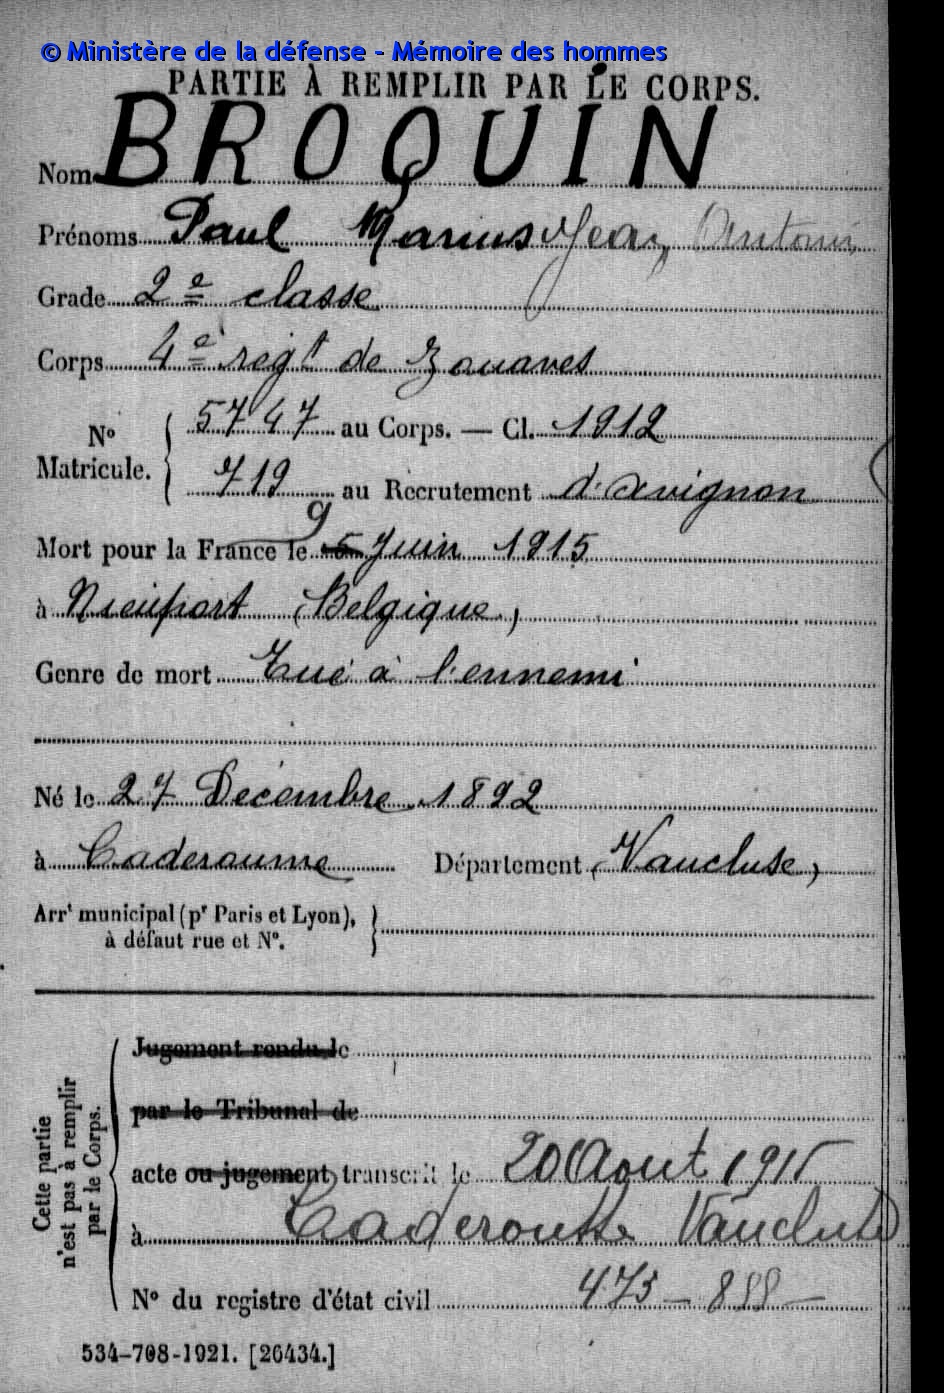 © Ministère de la défense - Mémoire des hommes
PARTIE À REMPLIR PAR LE CORPS.
Nom BROQUIN
Prénoms Paul Marius Jean Antonin
Grade 2e classe
Corps 4e régt de Zouaves
No Matricule. { 5747 au Corps. — Cl. 1912
719 au Recrutement d'Avignon
Mort pour la France le 5 9 Juin 1915
à Nieuport (Belgique)
Genre de mort Tué à l'ennemi
Né le 27 Décembre 1892
à Caderousse Département (Vaucluse)
Arrt municipal (pr Paris et Lyon),
à défaut rue et No.
Cette partie n'est pas à remplir par le Corps.
Jugement rendu le
par le Tribunal de
acte ou jugement transcrit le 20 Aout 1915
à Caderousse Vaucluse
No du registre d'état civil
534-708-1921. [26434.]